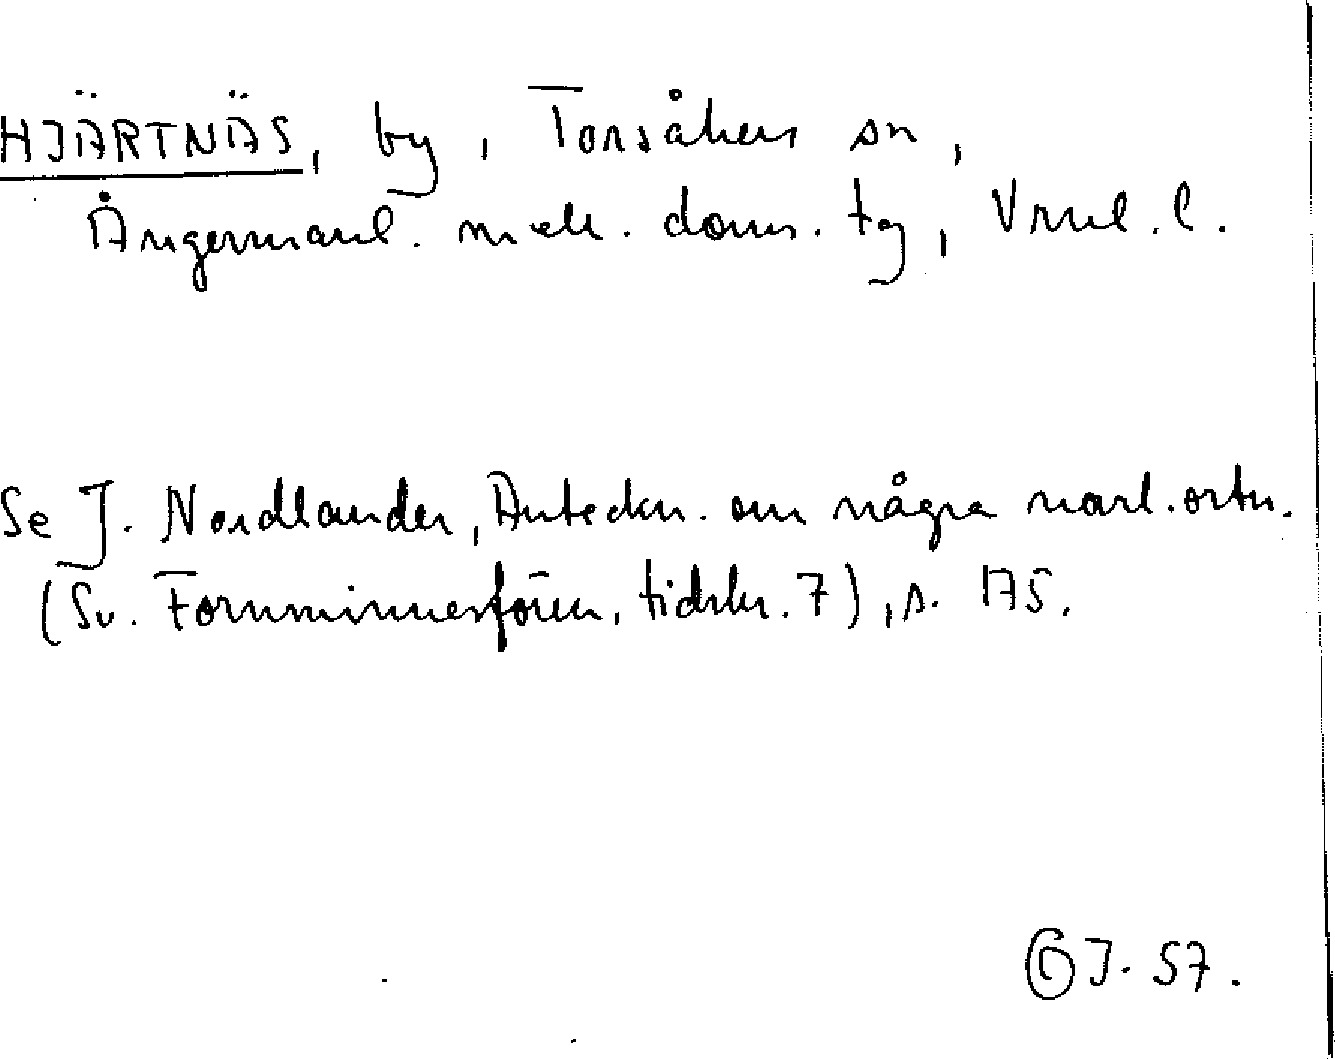 HJÄRTNÄS, by, Torsåkers sn,
Ångermanl. mell. doms. tg, Vrnl. l.
Se J. Nordlander, Anteckn. om några norl. ortn.
(Sv. Fornminnesfören. tidskr. 7), s. 175.
J. 57.